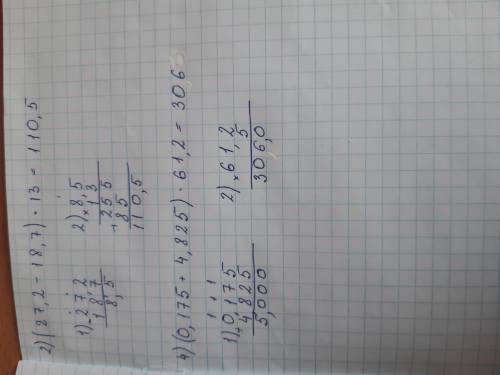 2) (27,2 - 18,7) · 13 = 110,5
1) - 27,2
18,7
8,5
2) × 8,5
13
+ 255
85
110,5
4) (0,175 + 4,825) · 61,2 = 306
1) + 0,175
4,825
5,000
2) × 61,2
5
306,0